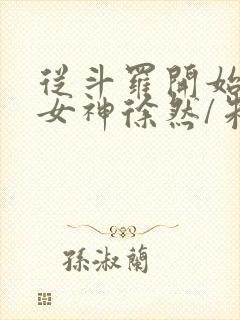 從斗羅開始
女神徐然/朱
孫淑蘭